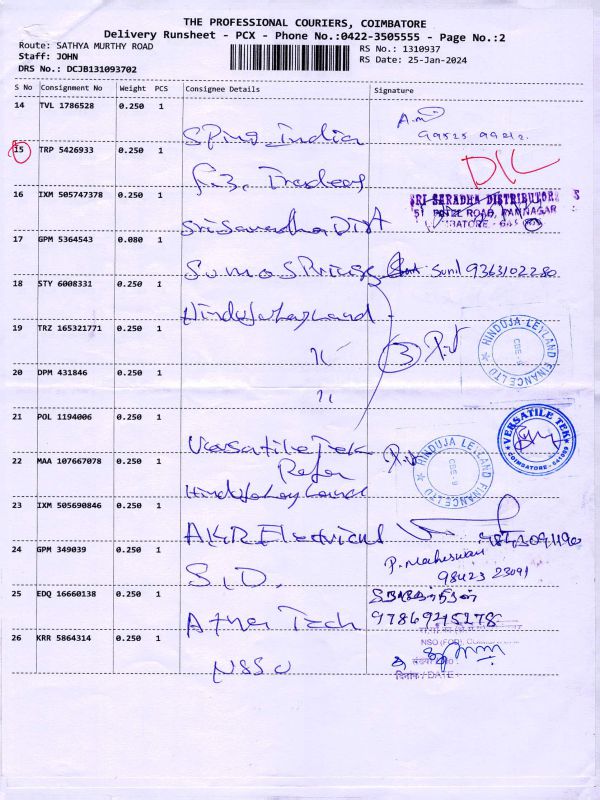 THE PROFESSIONAL COURIERS, COIMBATORE
Delivery Runsheet - PCX - Phone No.:0422-3505555 - Page No.:2
Route: SATHYA MURTHY ROAD
RS No.: 1310937
Staff: JOHN
RS Date: 25-Jan-2024
DRS No.: DCJB131093702
S No Consignment No Weight PCS Consignee Details Signature
14 TVL 1786528 0.250 1
Spring India
99525 99212
15 TRP 5426933 0.250 1
Traders
D/L
16 IXM 505747378 0.250 1
Sri Saradha Dist
SRI SARADHA DISTRIBUTORS
ROAD, RAMNAGAR
17 GPM 5364543 0.080 1
Sumo Springs
Sunil 9363102280
18 STY 6008331 0.250 1
Hinduja Leyland
19 TRZ 165321771 0.250 1
"
3
HINDUJA LEYLAND FINANCE LTD
CBE - 9
20 DPM 431846 0.250 1
"
21 POL 1194006 0.250 1
Versatile Tek
VERSATILE TEK
COIMBATORE
22 MAA 107667078 0.250 1
Hinduja Leyland
HINDUJA LEYLAND FINANCE LTD
CBE - 9
23 IXM 505690846 0.250 1
AKR Electrical
24 GPM 349039 0.250 1
S.I.D.
P. Maheswari
98423 23091
25 EDQ 16660138 0.250 1
Ather Tech
9786945278
26 KRR 5864314 0.250 1
NSSO
NSO (FOD),
दिनांक / DATE